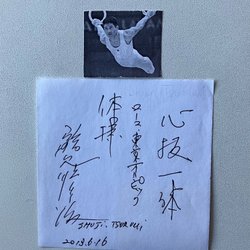 心技一体
ローマ東京オリンピック
体操
鶴見修治
SHUJI. TSURUMI
2013.6.16